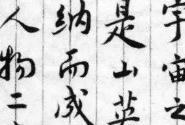 宇宙之
是山英
纳而成
人物二